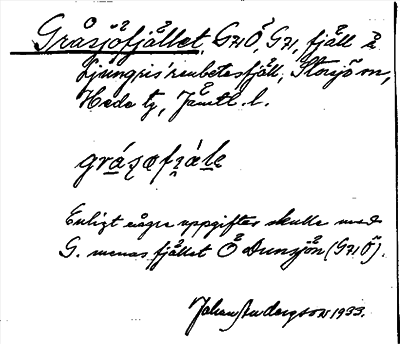 Gråsjöfjållet, G21Ö, G21, fjäll å
Ljungris' renbetesfjäll, Storsjö sn,
Hede tg, Jämtl. l.
Enligt några uppgifter skulle med
G. menas fjället Ö Dunsjön (G21Ö).
Johan Anderson 1933.